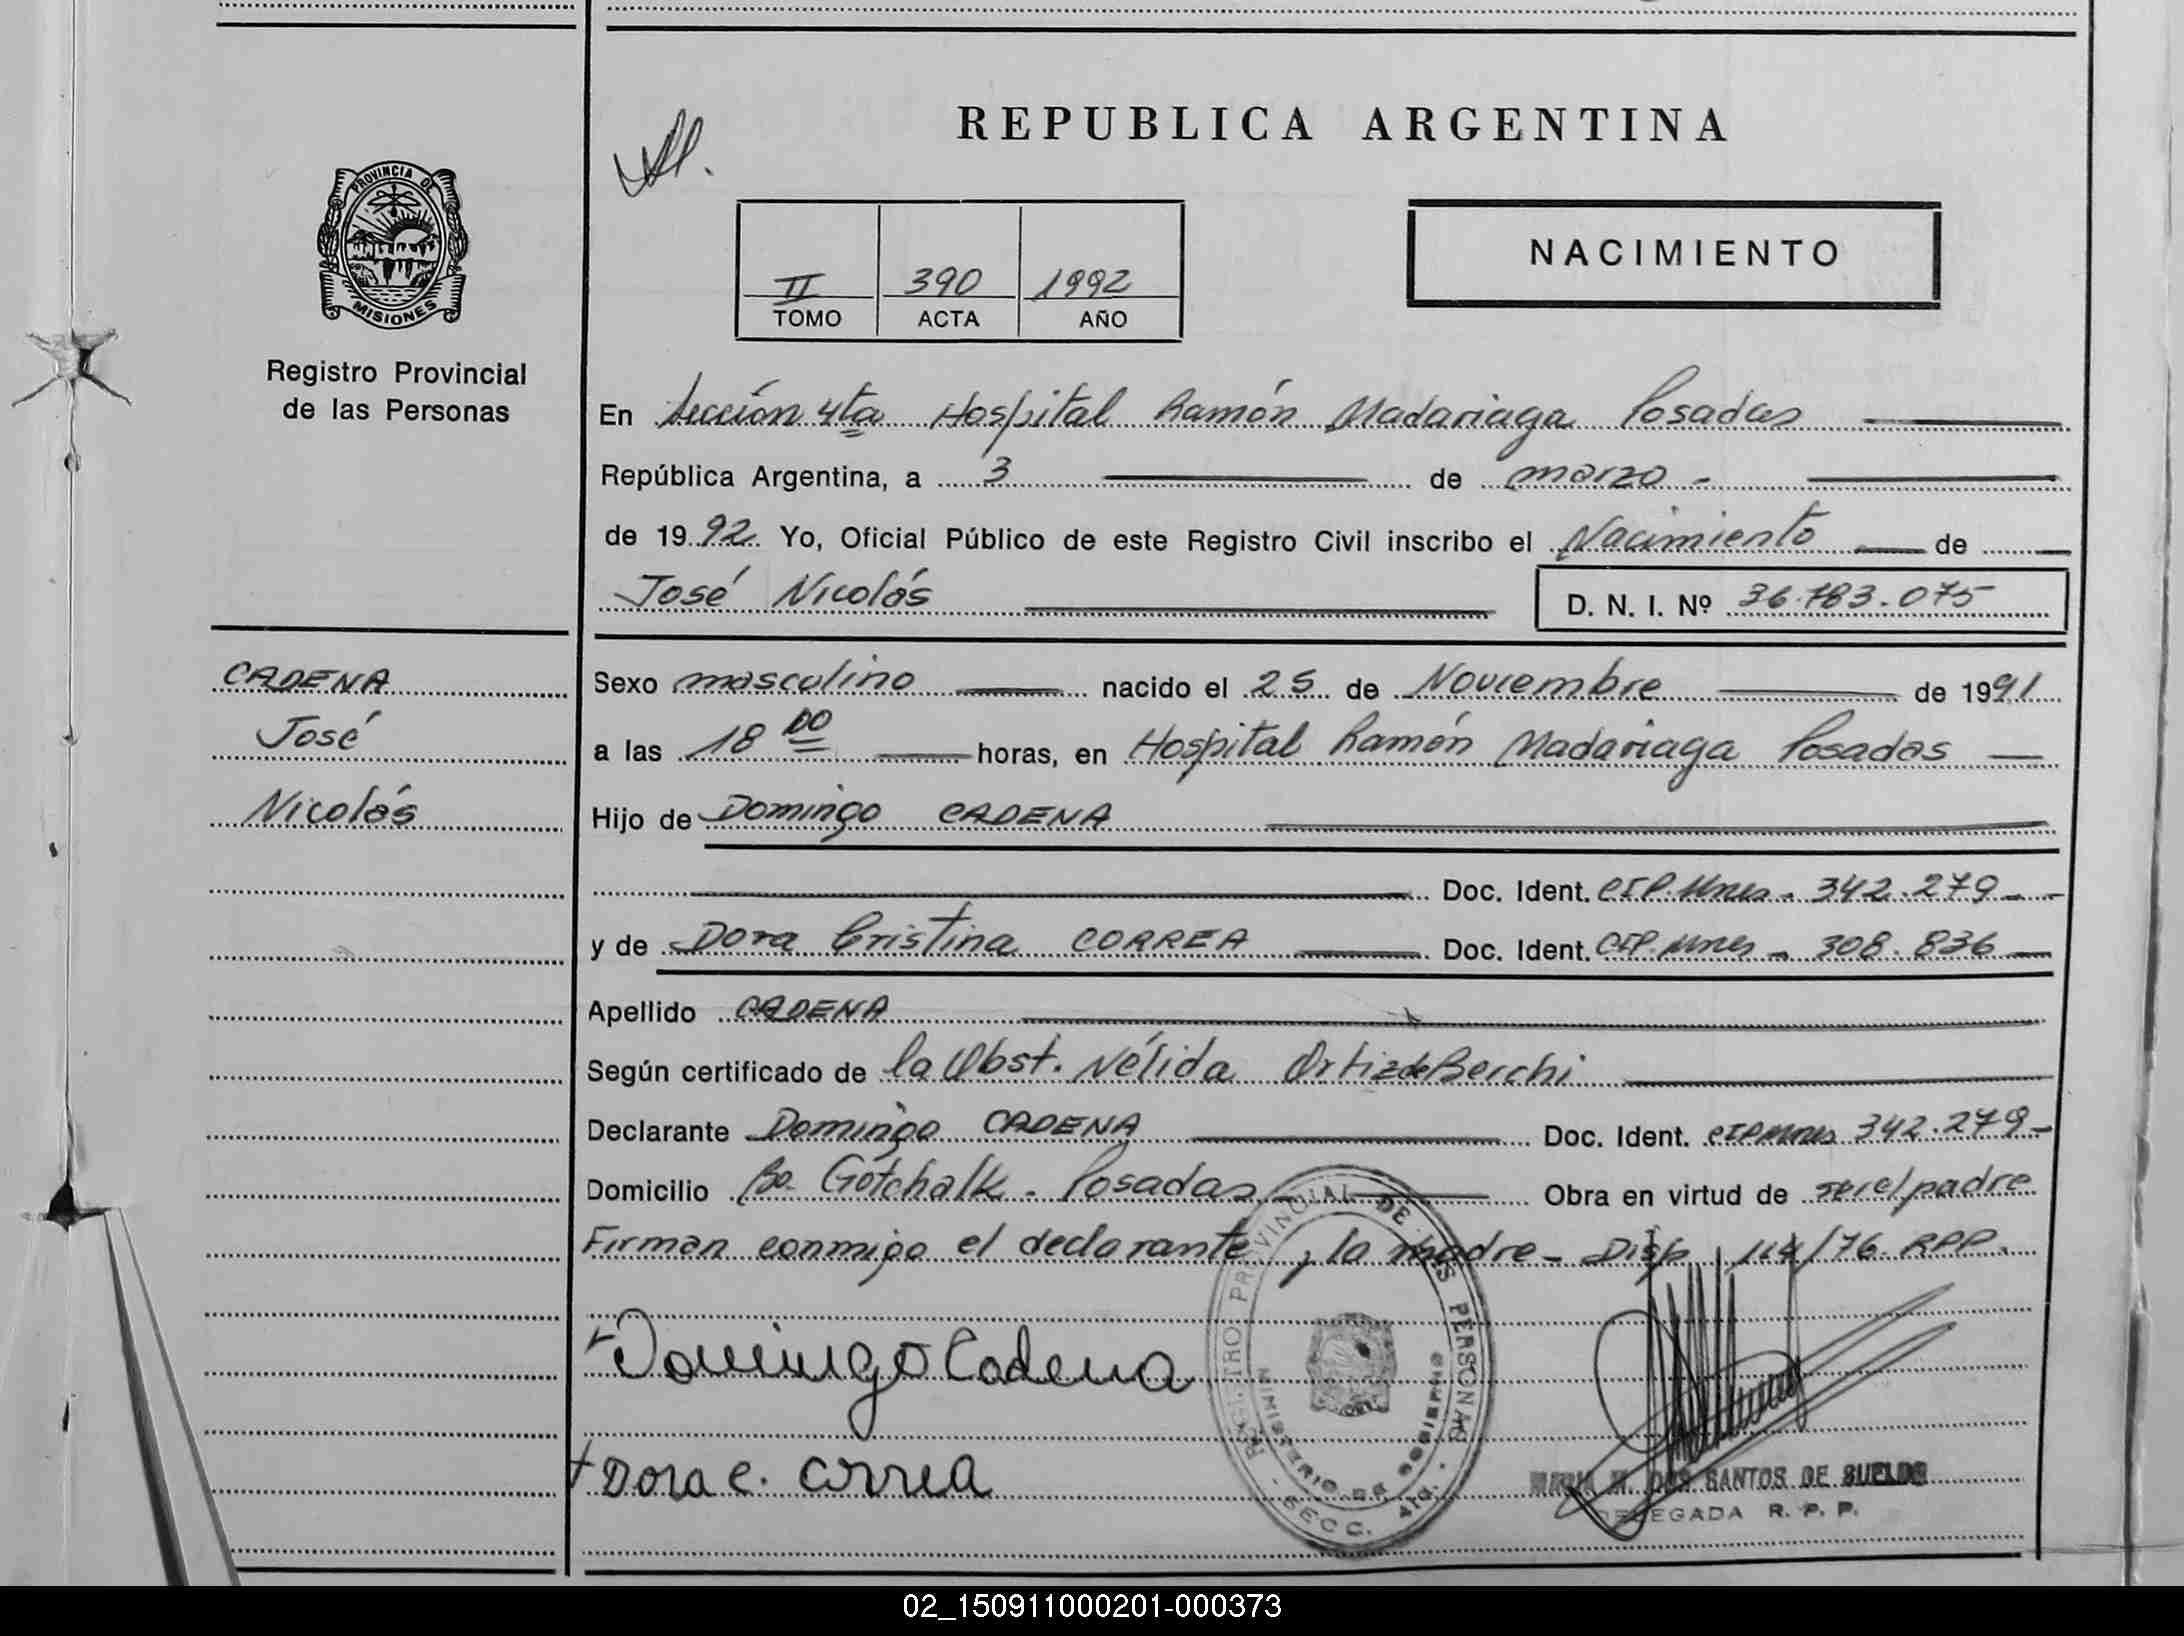 REPUBLICA ARGENTINA
PROVINCIA DE
MISIONES
Registro Provincial
de las Personas
II 390 1992
TOMO ACTA AÑO
NACIMIENTO
En Sección 4ta Hospital Ramón Madariaga Posadas
República Argentina, a 3 de marzo -
de 1992 Yo, Oficial Público de este Registro Civil inscribo el Nacimiento de
José Nicolás
D. N. I. Nº 36.783.075
CADENA
José
Nicolás
Sexo masculino nacido el 25 de Noviembre de 1991
a las 18 00 horas, en Hospital Ramón Madariaga Posadas
Hijo de Domingo CADENA
Doc. Ident. CIP. Mnes - 342.279 -
y de Dora Cristina CORREA Doc. Ident. CIP. Mnes - 308.836
Apellido CADENA
Según certificado de la Obst. Nélida Ortiz de Berchi
Declarante Domingo CADENA Doc. Ident. CIP Mnes 342.279 -
Domicilio Bo. Gotchalk - Posadas - Obra en virtud de ser el padre
Firman conmigo el declarante y la madre - Disp 114/76 RPP.
Domingo Cadena
Dora C. Correa
REGISTRO PROVINCIAL DE LAS PERSONAS
MINISTERIO DE GOBIERNO
SECC. 4ta.
MARIA M. DOS SANTOS DE SUELDO
DELEGADA R. P. P.
02_150911000201-000373